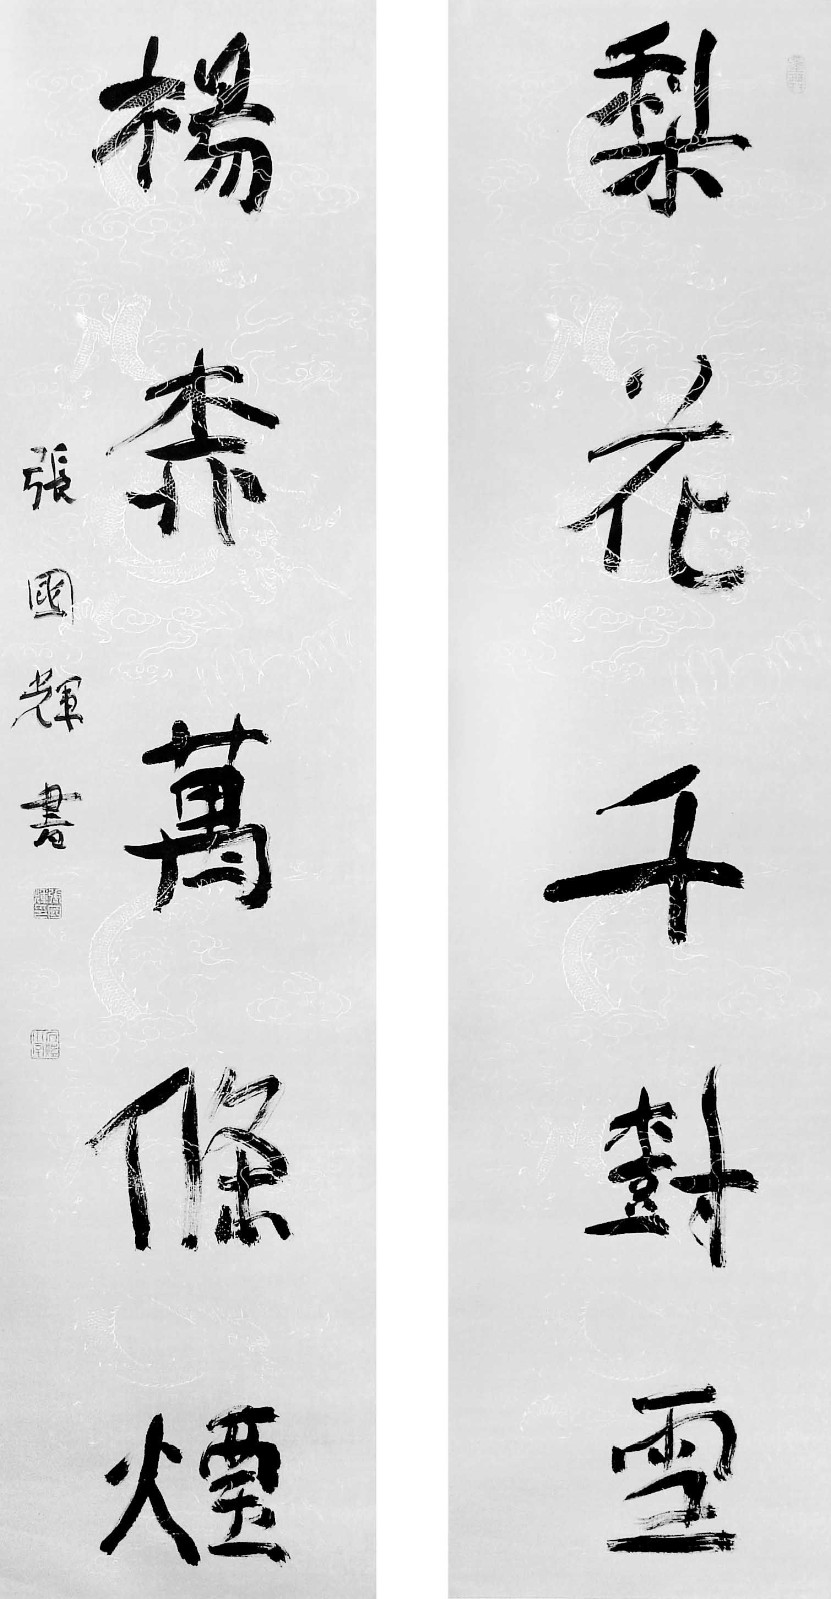 梨花千樹雪
楊葉萬條煙
張國輝書